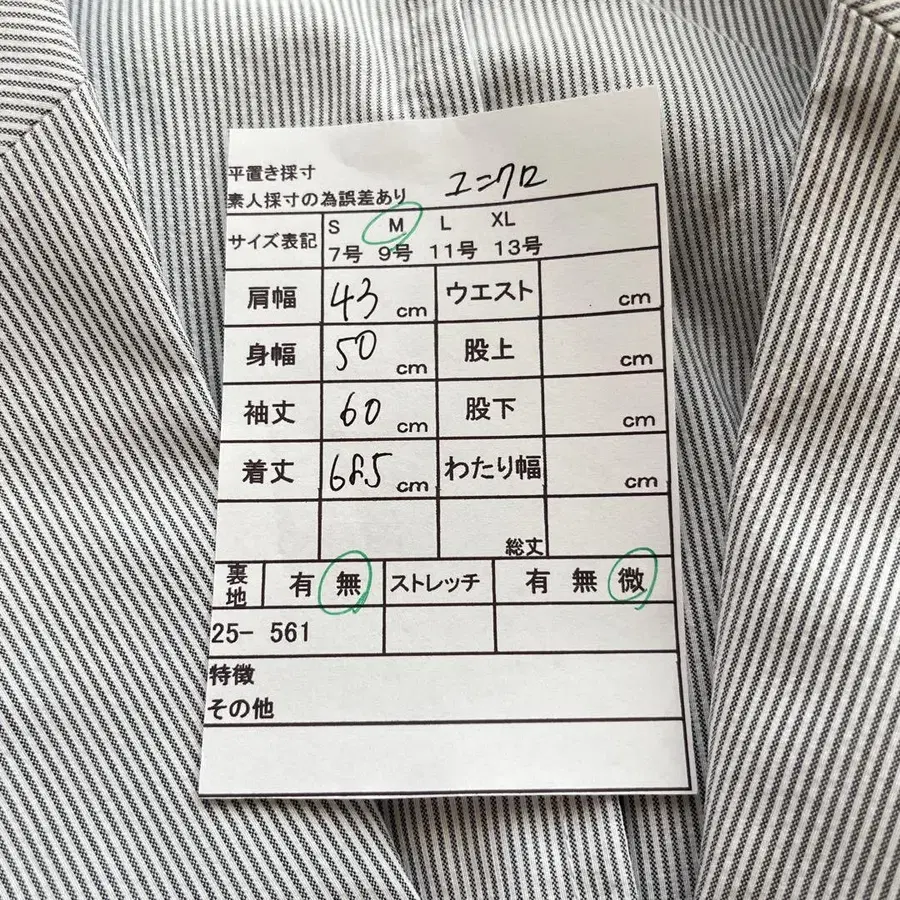 平置き採寸
素人採寸の為誤差あり ユニクロ
サイズ表記 S M L XL
7号 9号 11号 13号
肩幅 43 cm ウエスト cm
身幅 50 cm 股上 cm
袖丈 60 cm 股下 cm
着丈 68.5 cm わたり幅 cm
総丈
裏地 有 無 ストレッチ 有 無 微
25- 561
特徴
その他